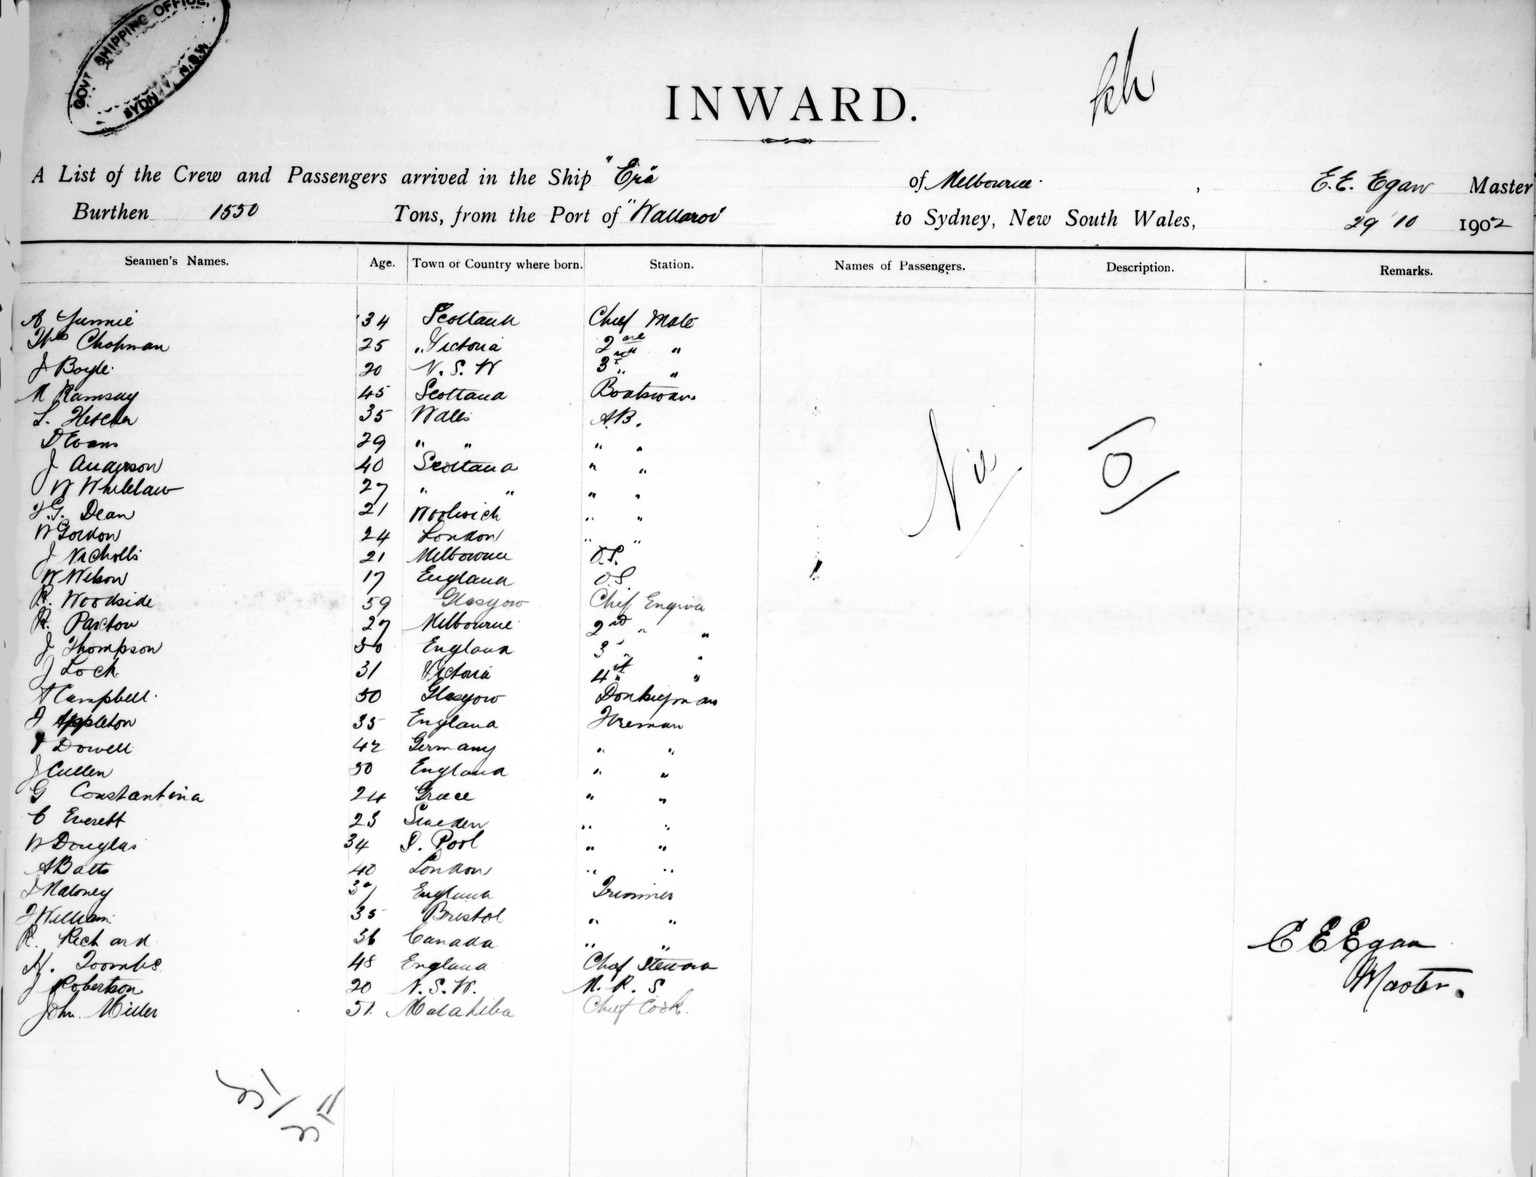 GOVT SHIPPING OFFICE
SYDNEY N.S.W.
INWARD.
A List of the Crew and Passengers arrived in the Ship "Era" of Melbourne, E.E. Egan Master
Burthen 1550 Tons, from the Port of "Wallaroo" to Sydney, New South Wales, 29 10 1902
Seamen's Names. Age. Town or Country where born. Station. Names of Passengers. Description. Remarks.
A 34 Scotland Chief Mate
Wm Chapman 25 Victoria 2nd "
J Boyle 20 N.S.W 3rd "
M Ramsay 45 Scotland Boatswain
L. 35 Wales A.B.
D Evans 29 " " " "
J Anderson 40 Scotland " "
W Whitelaw 27 " " " "
Dean 21 Woolwich " "
W Gordon 24 London " "
J Nicholls 21 Melbourne O.S.
W Wilson 17 England O.S
R. Woodside 59 Glasgow Chief Engineer
R. Paxton 27 Melbourne 2nd " "
J Thompson 30 England 3rd " "
J Lock 31 Victoria 4th " "
A Campbell 50 Glasgow Donkeyman
Appleton 35 England Fireman
Dowell 42 Germany " "
J Cullen 30 England " "
G Constantina 24 Greece " "
C Everett 23 Sweden " "
W Douglas 34 L. Pool " "
A Batts 40 London " "
Maloney 37 England Trimmer
William 35 Bristol " "
R. Richard 36 Canada " "
H. Toombs 48 England Chef Steward
J Robertson 20 N.S.W. M.R.S
John Miller 51 Chief Cook
Nil
0
C E Egan
Master.